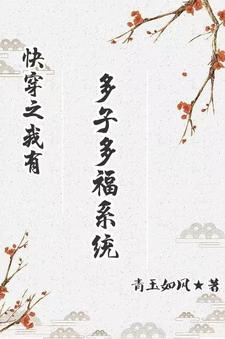 快穿之我有
多子多福系统
青玉如风★著